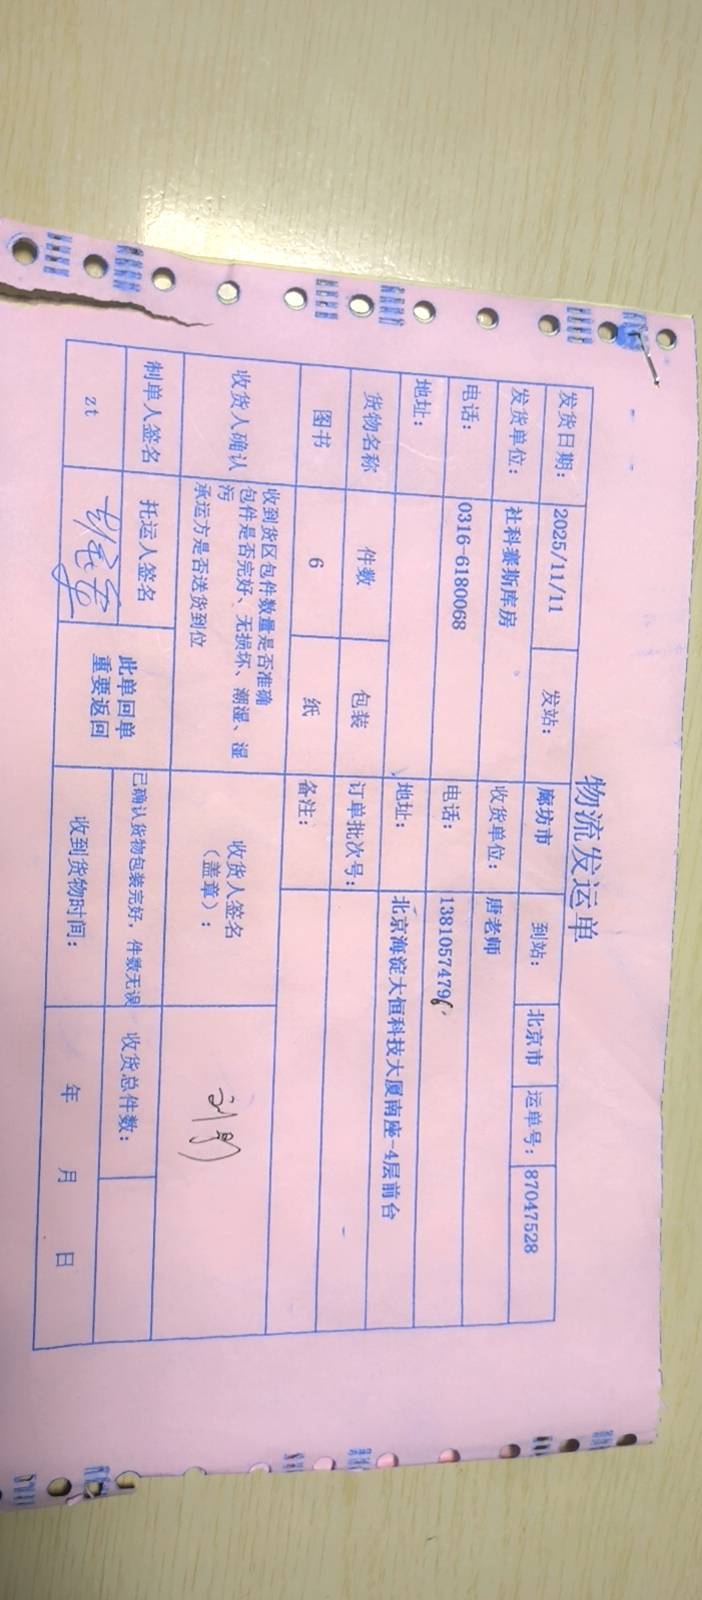 物流发运单
发货日期： 2025/11/11 发站： 廊坊市 到站： 北京市 运单号： 87047528
发货单位： 社科赛斯库房 收货单位： 唐老师
电话： 0316-6180068 电话： 13810574796
地址： 地址： 北京海淀大恒科技大厦南座-4层前台
货物名称 件数 包装 订单批次号：
图书 6 纸 备注：
收货人确认 收到货区包件数量是否准确
包件是否完好、无损坏、潮湿、湿
污
承运方是否送货到位
收货人签名
（盖章）：
制单人签名 托运人签名 此单回单
重要返回
已确认货物包装完好，件数无误 收货总件数：
zt 收到货物时间： 年 月 日